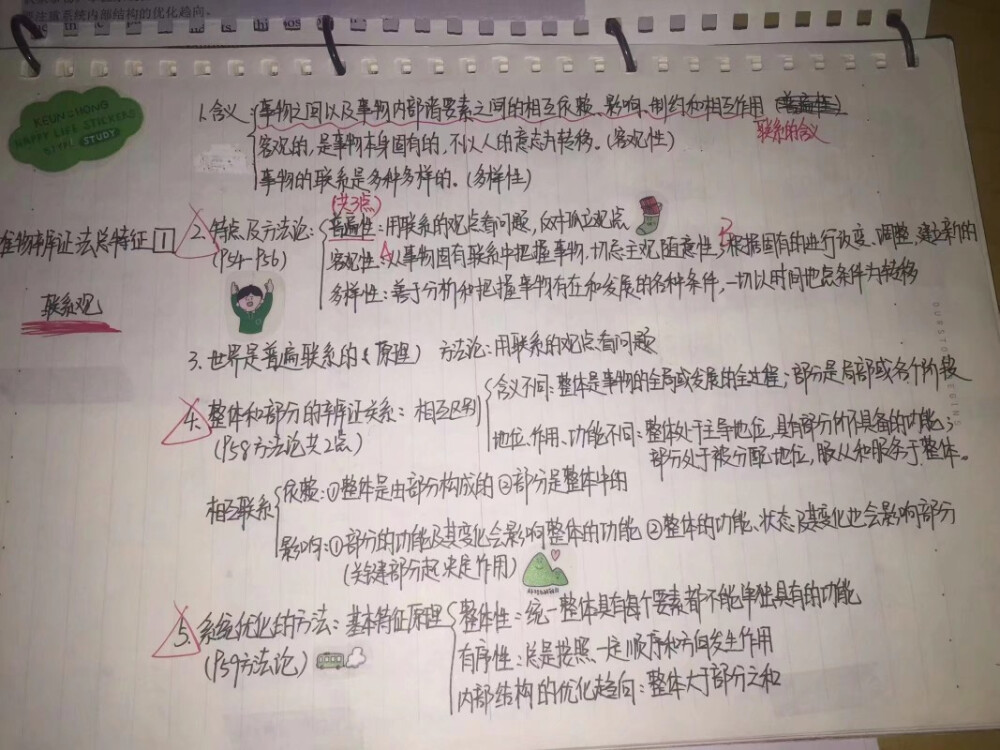 要注意系统内部结构的优化趋向。
KEUN HONG
HAPPY LIFE STICKERS
STUDY
1.含义
事物之间以及事物内部诸要素之间的相互依赖、影响、制约和相互作用 (普遍性)
联系的含义
客观的,是事物本身固有的,不以人的意志为转移。(客观性)
事物的联系是多种多样的。(多样性)
(共3点)
唯物辩证法总特征①
联系观
2. 特点及方法论:
(P54-P56)
普遍性:用联系的观点看问题,反对孤立观点
客观性:A从事物固有联系中把握事物,切忌主观随意性 B根据固有的进行改变、调整,建立新的
多样性:善于分析和把握事物存在和发展的各种条件,一切以时间地点条件为转移
3.世界是普遍联系的(原理) 方法论:用联系的观点看问题
4. 整体和部分的辩证关系:相互区别
(P58方法论共2点)
含义不同:整体是事物的全局或发展的全过程;部分是局部或各个阶段
地位、作用、功能不同:整体处于主导地位,具有部分所不具备的功能;
部分处于被分配地位,服从和服务于整体。
相互联系
依赖:①整体是由部分构成的 ②部分是整体中的
影响:①部分的功能及其变化会影响整体的功能 ②整体的功能、状态及其变化也会影响部分
(关键部分起决定作用)
5. 系统优化的方法:基本特征原理
(P59方法论)
整体性:统一整体具有每个要素都不能单独具有的功能
有序性:总是按照一定顺序和方向发生作用
内部结构的优化趋向:整体大于部分之和